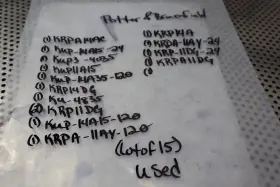 Potter & Brumfield
(1) KRPA14AG
(1) KUP-14A15-24
(1) KUP3-4035
(1) KUP11A15
(1) KUP-14A35-120
(1) KRP14DG
(1) KU-4835
(2) KRP11DG
(1) KUP-14A15-120
(1) KRPA-11AY-120
(1) KRP14A
(1) KRPA-11AY-24
(1) KRP-11DG-24
(1) KRPA11DG
(1)
(Lot of 15)
used